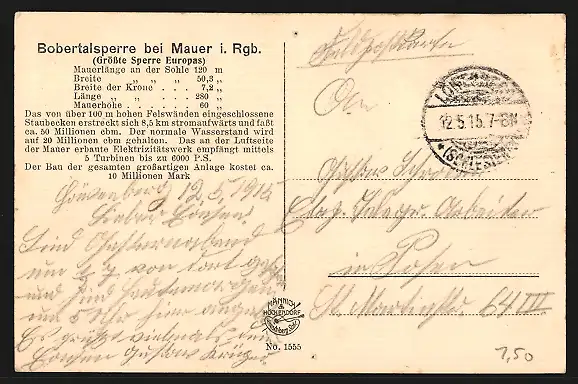 Bobertalsperre bei Mauer i. Rgb.
(Größte Sperre Europas)
Mauerlänge an der Sohle 120 m
Breite „ „ „ 50,3 „
Breite der Krone . . . 7,2 „
Länge „ „ . . . 280 „
Mauerhöhe . . . . . . 60 „
Das von über 100 m hohen Felswänden eingeschlossene
Staubecken erstreckt sich 8,5 km stromaufwärts und faßt
ca. 50 Millionen cbm. Der normale Wasserstand wird
auf 20 Millionen cbm gehalten. Das an der Luftseite
der Mauer erbaute Elektrizitätswerk empfängt mittels
5 Turbinen bis zu 6000 P.S.
Der Bau der gesamten großartigen Anlage kostet ca.
10 Millionen Mark
Löwenberg 12/5 1915
Lieber
Sind
und 7/7 von dort
und sind
um 5 Uhr hier
Es grüßt vielmals
Gustav Krüger
Feldpostkarte
An
12.5.15. 7-8N
*(SCHLESIEN)
Gustav
Telegr. Arbeiter
in Posen
St. Martinstr 64 III
MÄNNICH
&
HÖCKENDORF
No. 1555
1,50